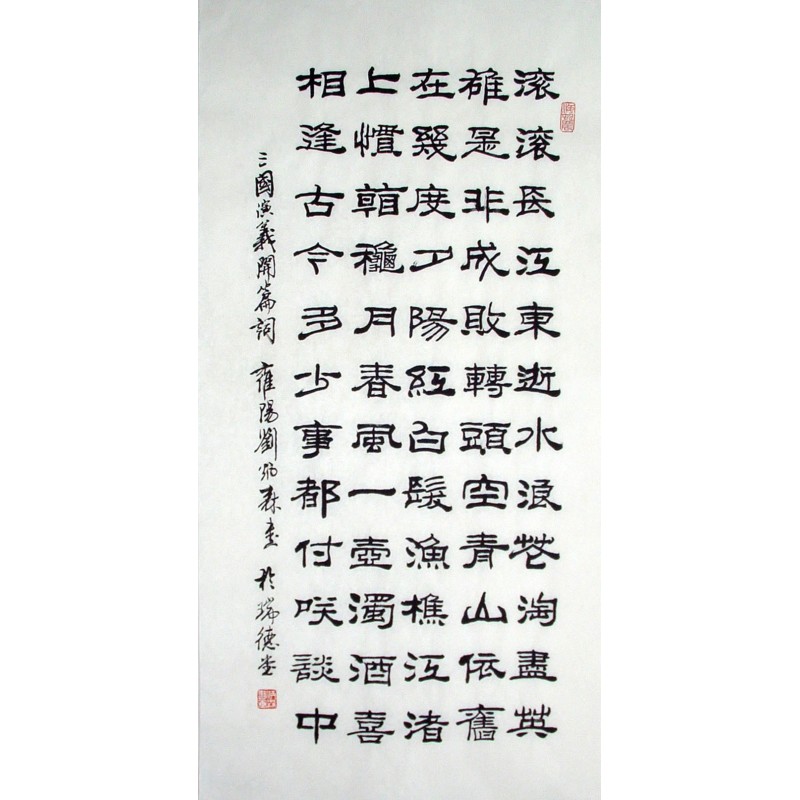 滚滚長江東逝水浪花淘盡英
雄是非成敗轉頭空青山依舊
在幾度夕陽紅白髮漁樵江渚
上慣看穐月春風一壺濁酒喜
相逢古今多少事都付咲談中
三國演義開篇詞 雍陽劉炳森書 於瑞德堂